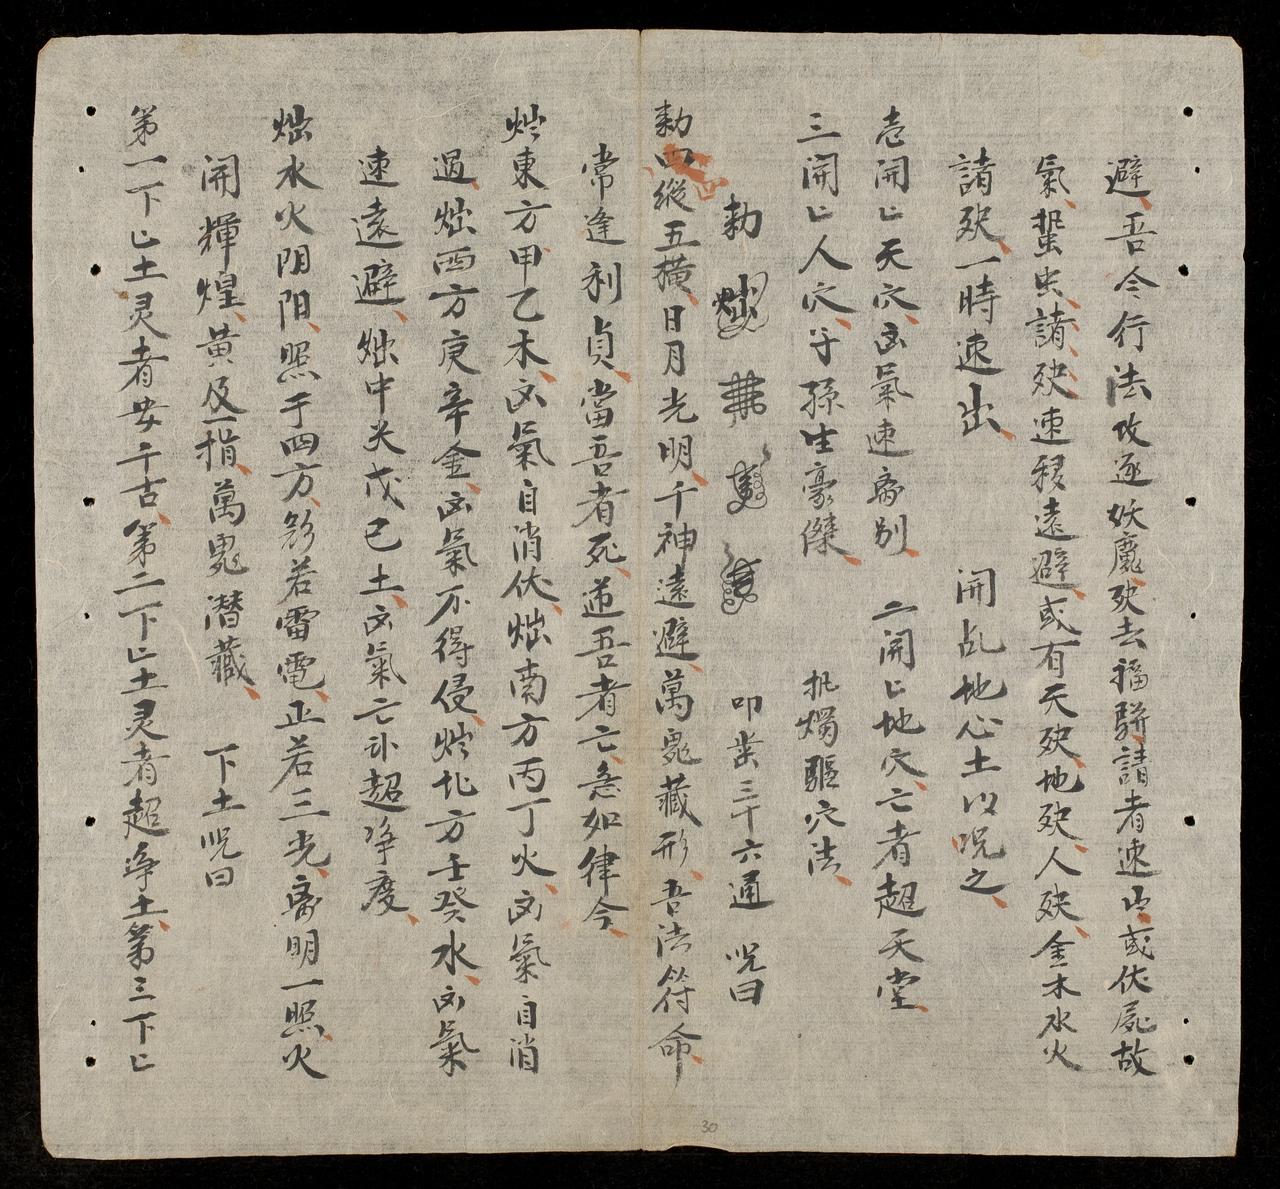 避吾令行法攻逐妖魔殃去福駢請者速出或伏屍故
氣蜚虫諸殃速移遠避或有天殃地殃人殃金木水火
諸殃一時速出　開乩地心土以咒之
壱開亡天穴凶氣速离别　二開亡地穴亡者超天堂
三開亡人穴子孫生豪傑　執燭驅穴法
勅　叩柴三十六通　咒曰
勅四縱五横日月光明千神遠避萬鬼藏形吾法符命
常逢利貞當吾者死逆吾者亡急如律令
烛東方甲乙木凶氣自消伏烛南方丙丁火凶氣自消
過烛西方庚辛金凶氣不得侵烛北方壬癸水凶氣
速遠避烛中央戊己土凶氣亡卟超净度
烛水火阴阳照于四方彩若雷電正若三光离明一照火
開輝煌黄及一指萬鬼潜藏　下土咒曰
第一下亡土灵者安千古第二下亡土灵者超净土第三下亡
30